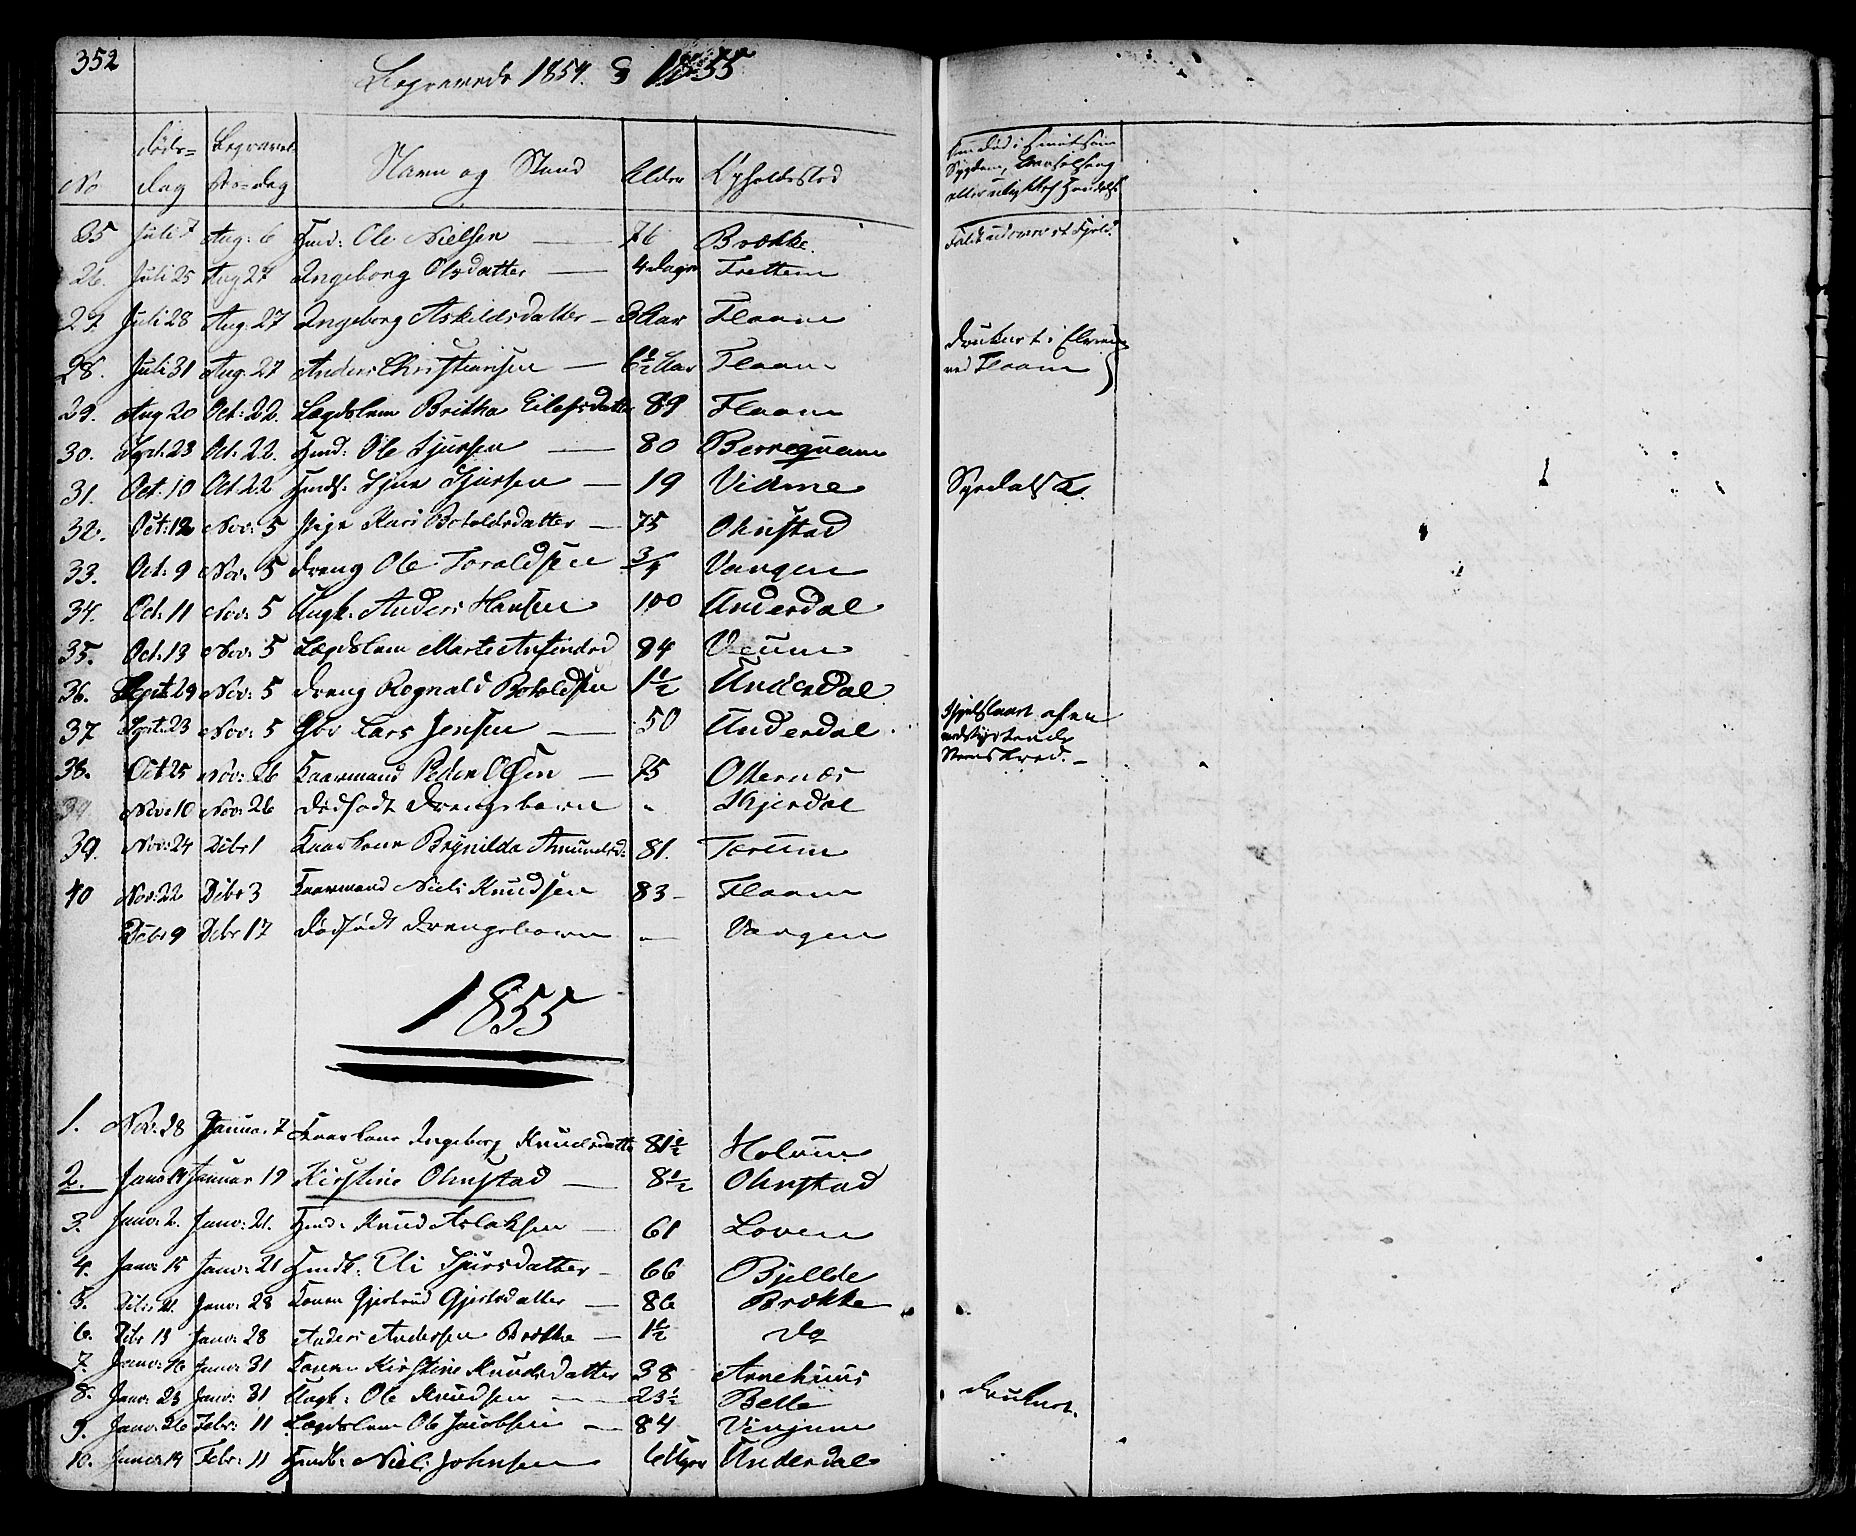 352
Begravede 1854. & 1855
No
døds=
dag
Begravel
ses=dag
Navn og Stand
Alder
Opholdssted
Om død i Smitsom
Sygdom, Barselseng
eller ulykkel. Hændelse
25 Juli 7 Aug: 6 Hmd: Ole Nielsen — 76 Brække. Faldt ud over et Fjeld.
26. Juli 25 Aug. 27 Ingeborg Olsdatter — 4 dage Frettem
27. Juli 28 Aug. 27 Ingeborg Askildsdatter — 3 Aar Flaam
28. Juli 31 Aug. 27 Anders Christiansen — 6½ Aar Flaam druknet i Elven
ved Flaam
29. Aug 20 Oct: 22. Lægdslem Britha Eilefsdatter 89 Flaam
30. Sept. 23 Oct. 22. Hmd: Ole Sjursen — 80 Berrequam
31. Oct: 10 Oct 22 Hmds: Sjur Sjursen — 19 Vidme
32. Oct: 12 Nov: 5 Pige Kari Botoldsdatter — 75 Ohnstad
33. Oct. 9 Nov: 5 dreng Ole Toraldsen 3/4 Vangen
34. Oct. 11 Nov: 5 Ungk: Anders Hansen 100 Underdal
35. Oct. 13 Nov: 5 Lægdslem Marte Anfindsd 84
36. Sept. 29 Nov: 5 dreng Rognald Botoldsen 1½ Underdal
37 Sept: 23 Nov: 5 Gbr Lars Jensen — 50 Underdal. Ihjelslaaet af en
nedstyrtende
38. Oct 25 Nov: 26 Kaarmand Peder Olsen — 75 Otternæs
Nov: 10 Nov: 26 dødfødt drengebarn - Skjerdal
39. Nov: 24 Dcbr 1 Kaarkone Brynilda Amundsd: 81. Tærum
40 Nov: 22 Dcbr 3 Kaarmand Niels Knudsen 83 — Flaam
Dcbr 9 Dcbr 17 dødfødt drengebarn — Vangen
1855
1. Nov: 28 Januar. 7 Kaarkone Ingeborg Knudsdatter 81½ Holum
2. Januar 19 Kirstine Ohnstad — 8½ Ohnstad
3. Janv: 2. Janv: 21. Hmd: Knud Aslaksen — 61 Loven
4. Janv: 15 Janv: 21 Hmdk: Eli Sjursdatter — 66 Bjellde
5. Dcbr: 21. Janv: 28 Konen Gjertrud Gjertsdatter — 86 Brække
6. Dcbr 13 Janv: 28 Anders Andersen Brække — 1½ do
7. Janv: 16 Janv: 31 Konen Kirstine Knudsdatter 38 Arnehuus
8. Janv: 23 Janv: 31 Ungk: Ole Knudsen — 23½ Belle druknet.
9. Janv: 26 Febr: 11 Lægdslem Ole Jacobsen — 84 Vinjum
10. Janv: 19 Febr: 11 Hmdb: Niels Johnsen 6 Uger Underdal